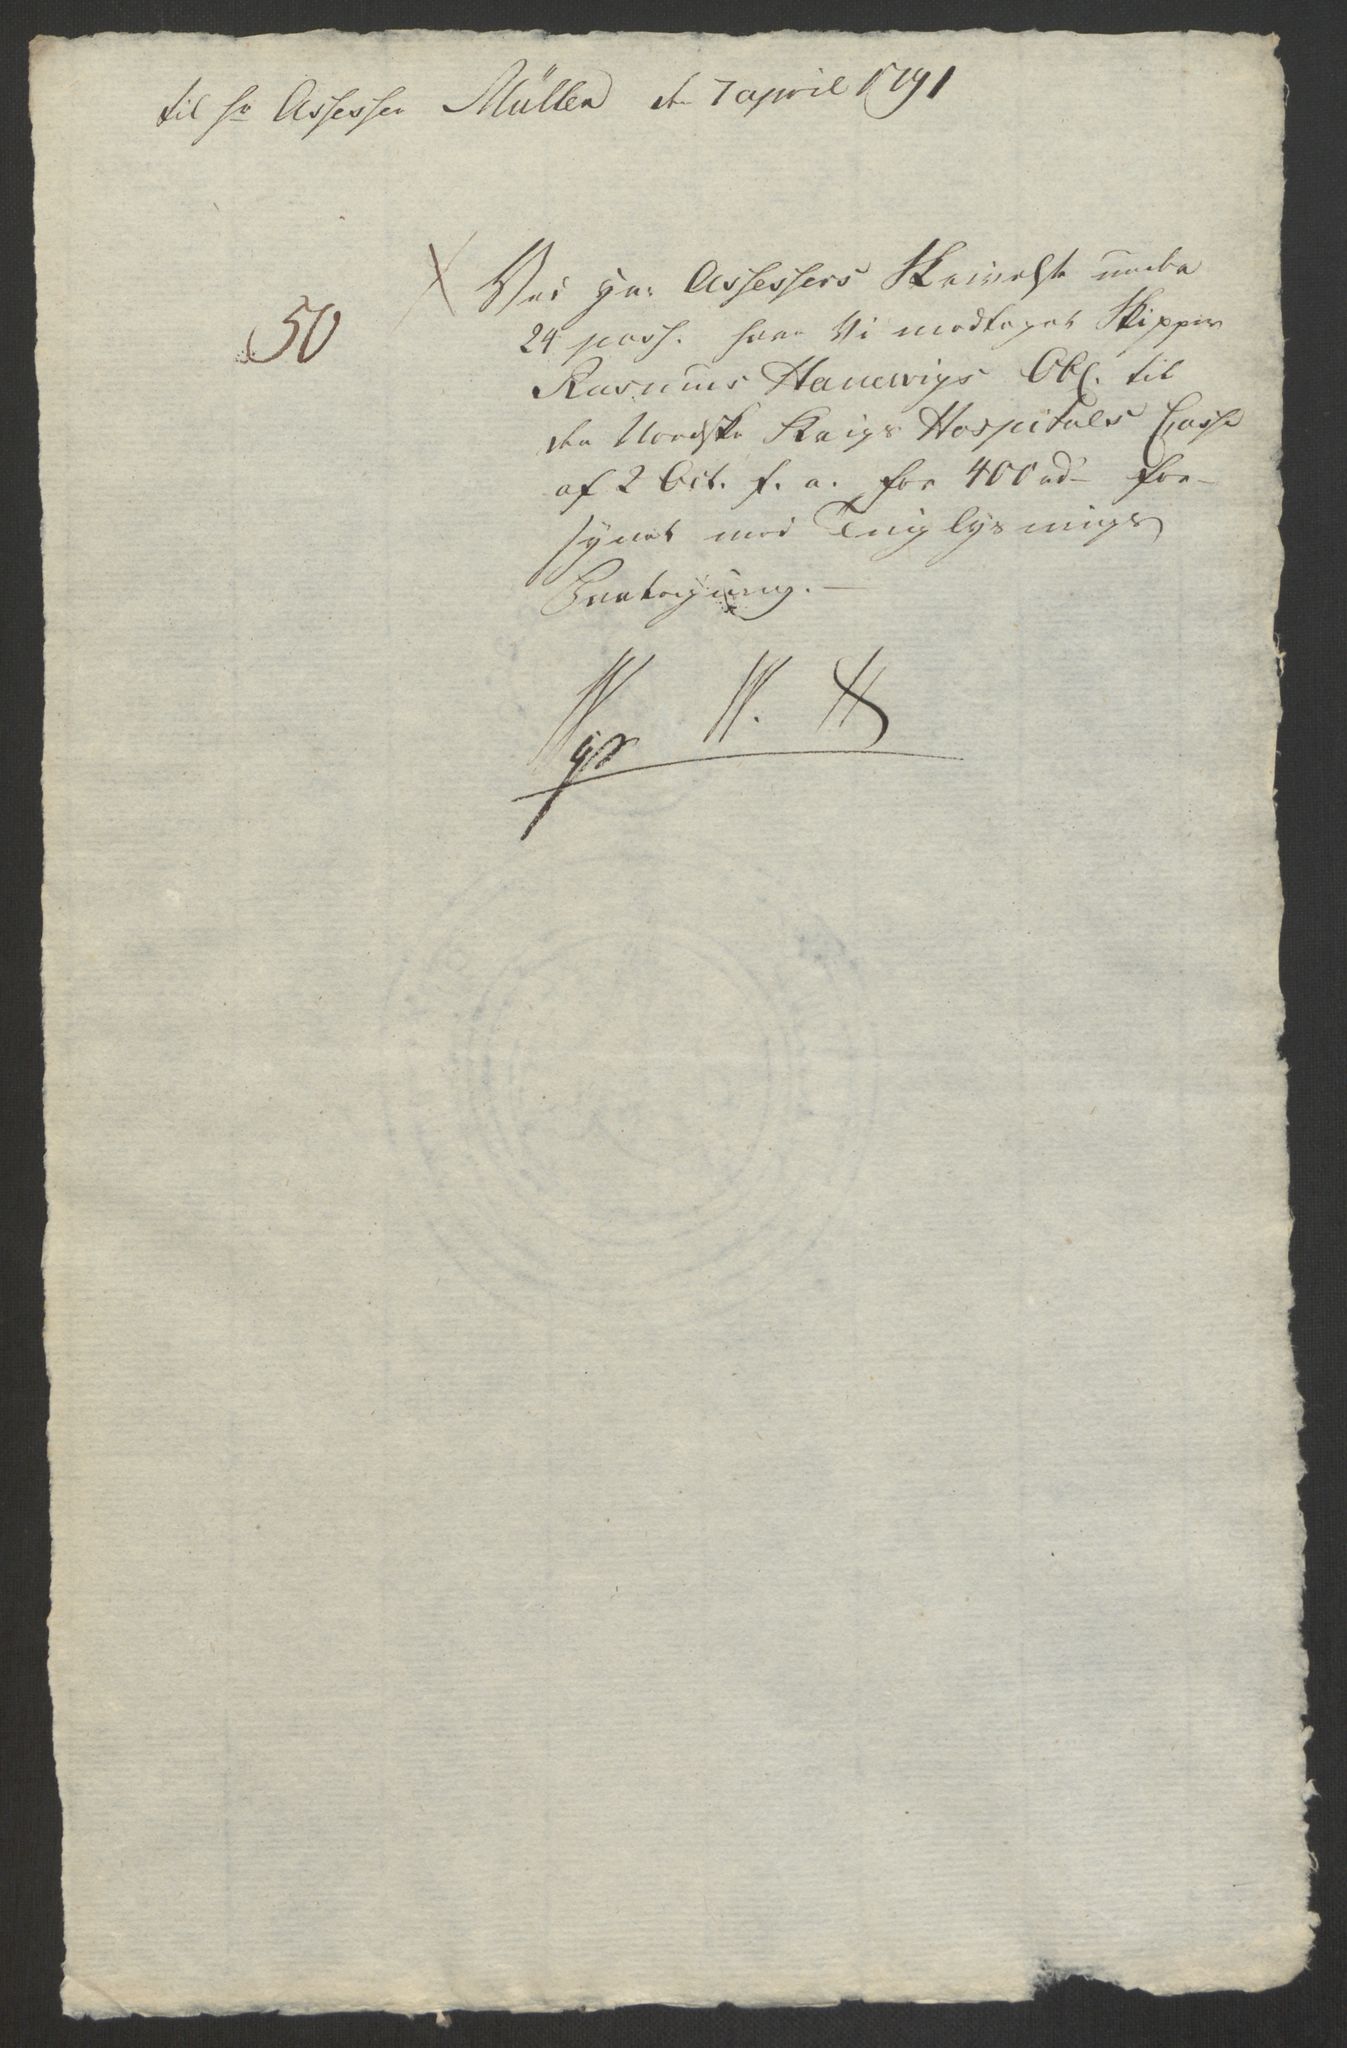 til Hr Assessor Müller den 7 april 1791
50
Med Hr: Assessors Skrivelse under
24 pass. have Vi modtaget Skipper
Rasmus Hanewigs Obl. til
den Norske Krigs Hospitals Casse
af 2 Oct. f. a. for 400 rd for-
synet med Tinglysnings
Paategning. —